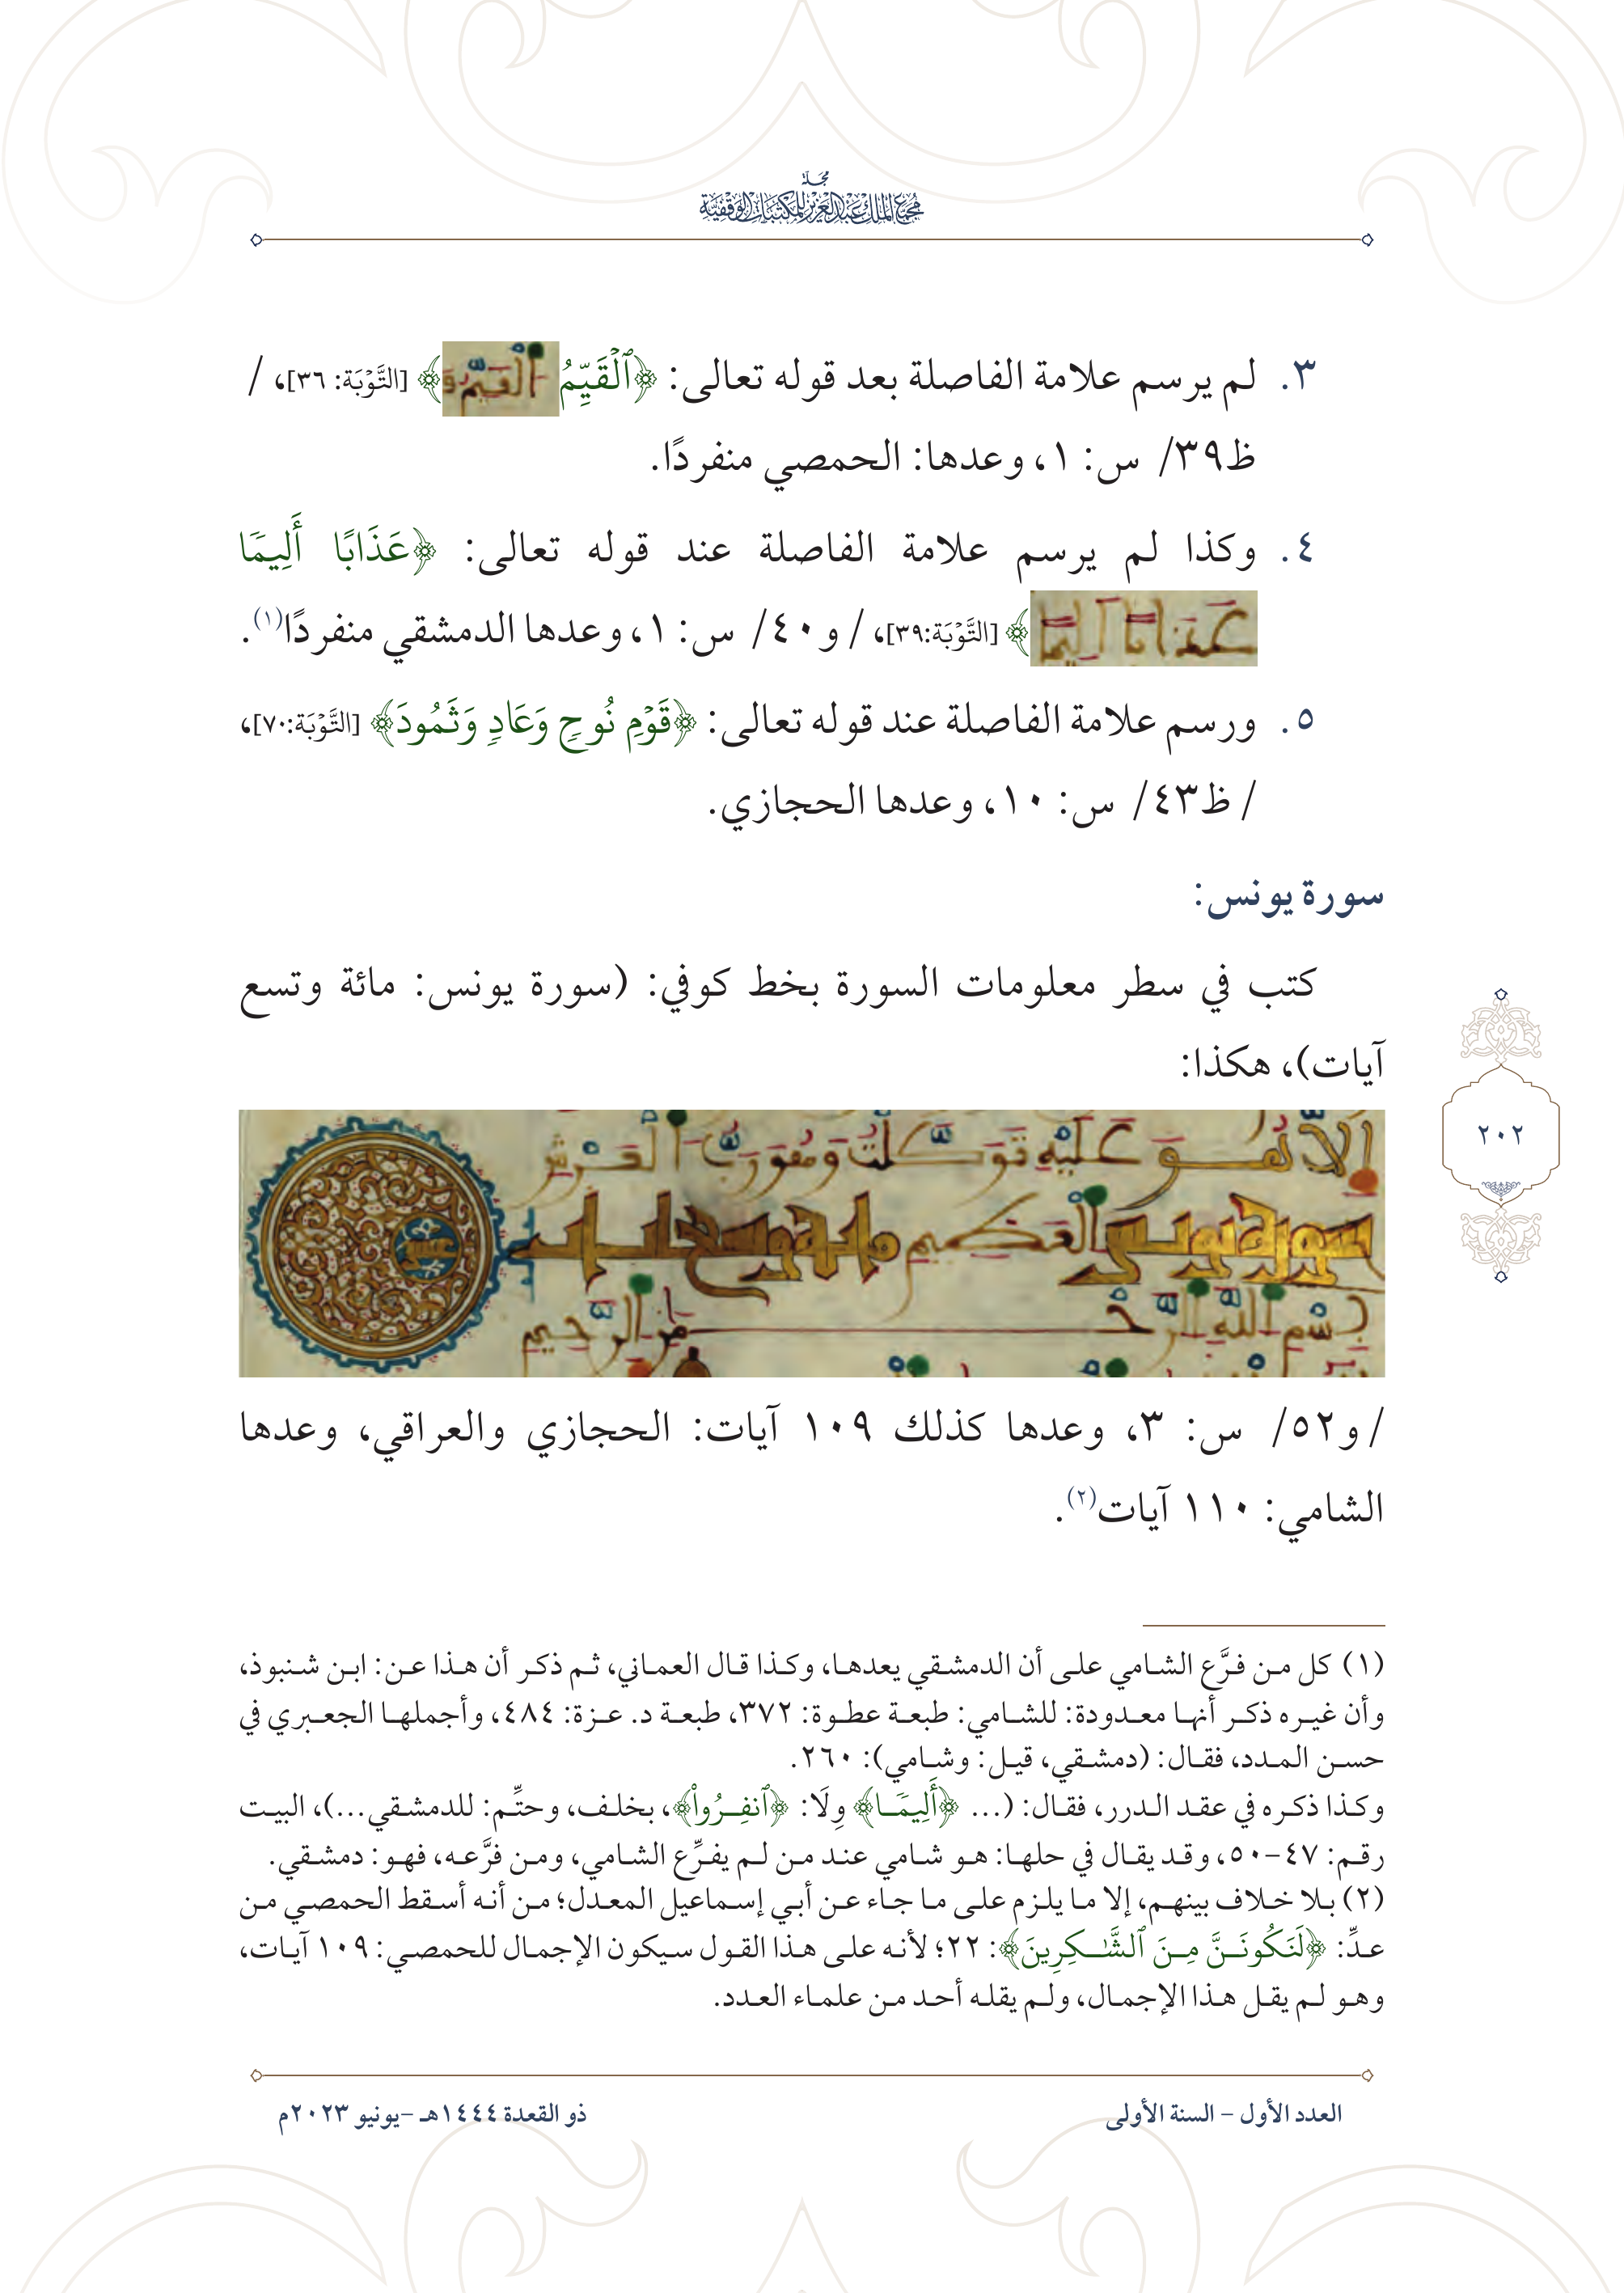 مجلة
مجمع الملك عبدالعزيز للمكتبات الوقفية
٣. لم يرسم علامة الفاصلة بعد قوله تعالى: ﴿ٱلۡقَيِّمُ القيم﴾ [التَّوۡبَة: ٣٦]، /
ظ٣٩/ س: ١، وعدها: الحمصي منفردًا.
٤. وكذا لم يرسم علامة الفاصلة عند قوله تعالى: ﴿عَذَابًا أَلِيمٗا
عذابا اليما﴾ [التَّوۡبَة:٣٩]، /و٤٠/ س: ١، وعدها الدمشقي منفردًا(١).
٥. ورسم علامة الفاصلة عند قوله تعالى: ﴿قَوۡمِ نُوحٖ وَعَادٖ وَثَمُودَ﴾ [التَّوۡبَة:٧٠]،
/ظ٤٣/ س: ١٠، وعدها الحجازي.
سورة يونس:
كتب في سطر معلومات السورة بخط كوفي: (سورة يونس: مائة وتسع
آيات)، هكذا:
٢٠٢
إلا هو عليه توكلت وهو رب العرش
سورة يونس العظيم مائة وتسع آيات
عشر
بسم الله الرحمن الرحيم
/و٥٢/ س: ٣، وعدها كذلك ١٠٩ آيات: الحجازي والعراقي، وعدها
الشامي: ١١٠ آيات(٢).
(١) كل من فرَّع الشامي على أن الدمشقي يعدها، وكذا قال العماني، ثم ذكر أن هذا عن: ابن شنبوذ،
وأن غيره ذكر أنها معدودة: للشامي: طبعة عطوة: ٣٧٢، طبعة د. عزة: ٤٨٤، وأجملها الجعبري في
حسن المدد، فقال: (دمشقي، قيل: وشامي): ٢٦٠.
وكذا ذكره في عقد الدرر، فقال: (... ﴿أَلِيمٗا﴾ وِلَا: ﴿ٱنفِرُواْ﴾، بخلف، وحتِّم: للدمشقي...)، البيت
رقم: ٤٧-٥٠، وقد يقال في حلها: هو شامي عند من لم يفرِّع الشامي، ومن فرَّعه، فهو: دمشقي.
(٢) بلا خلاف بينهم، إلا ما يلزم على ما جاء عن أبي إسماعيل المعدل؛ من أنه أسقط الحمصي من
عدِّ: ﴿لَنَكُونَنَّ مِنَ ٱلشَّٰكِرِينَ﴾: ٢٢؛ لأنه على هذا القول سيكون الإجمال للحمصي: ١٠٩ آيات،
وهو لم يقل هذا الإجمال، ولم يقله أحد من علماء العدد.
العدد الأول - السنة الأولى
ذو القعدة ١٤٤٤هـ -يونيو ٢٠٢٣م